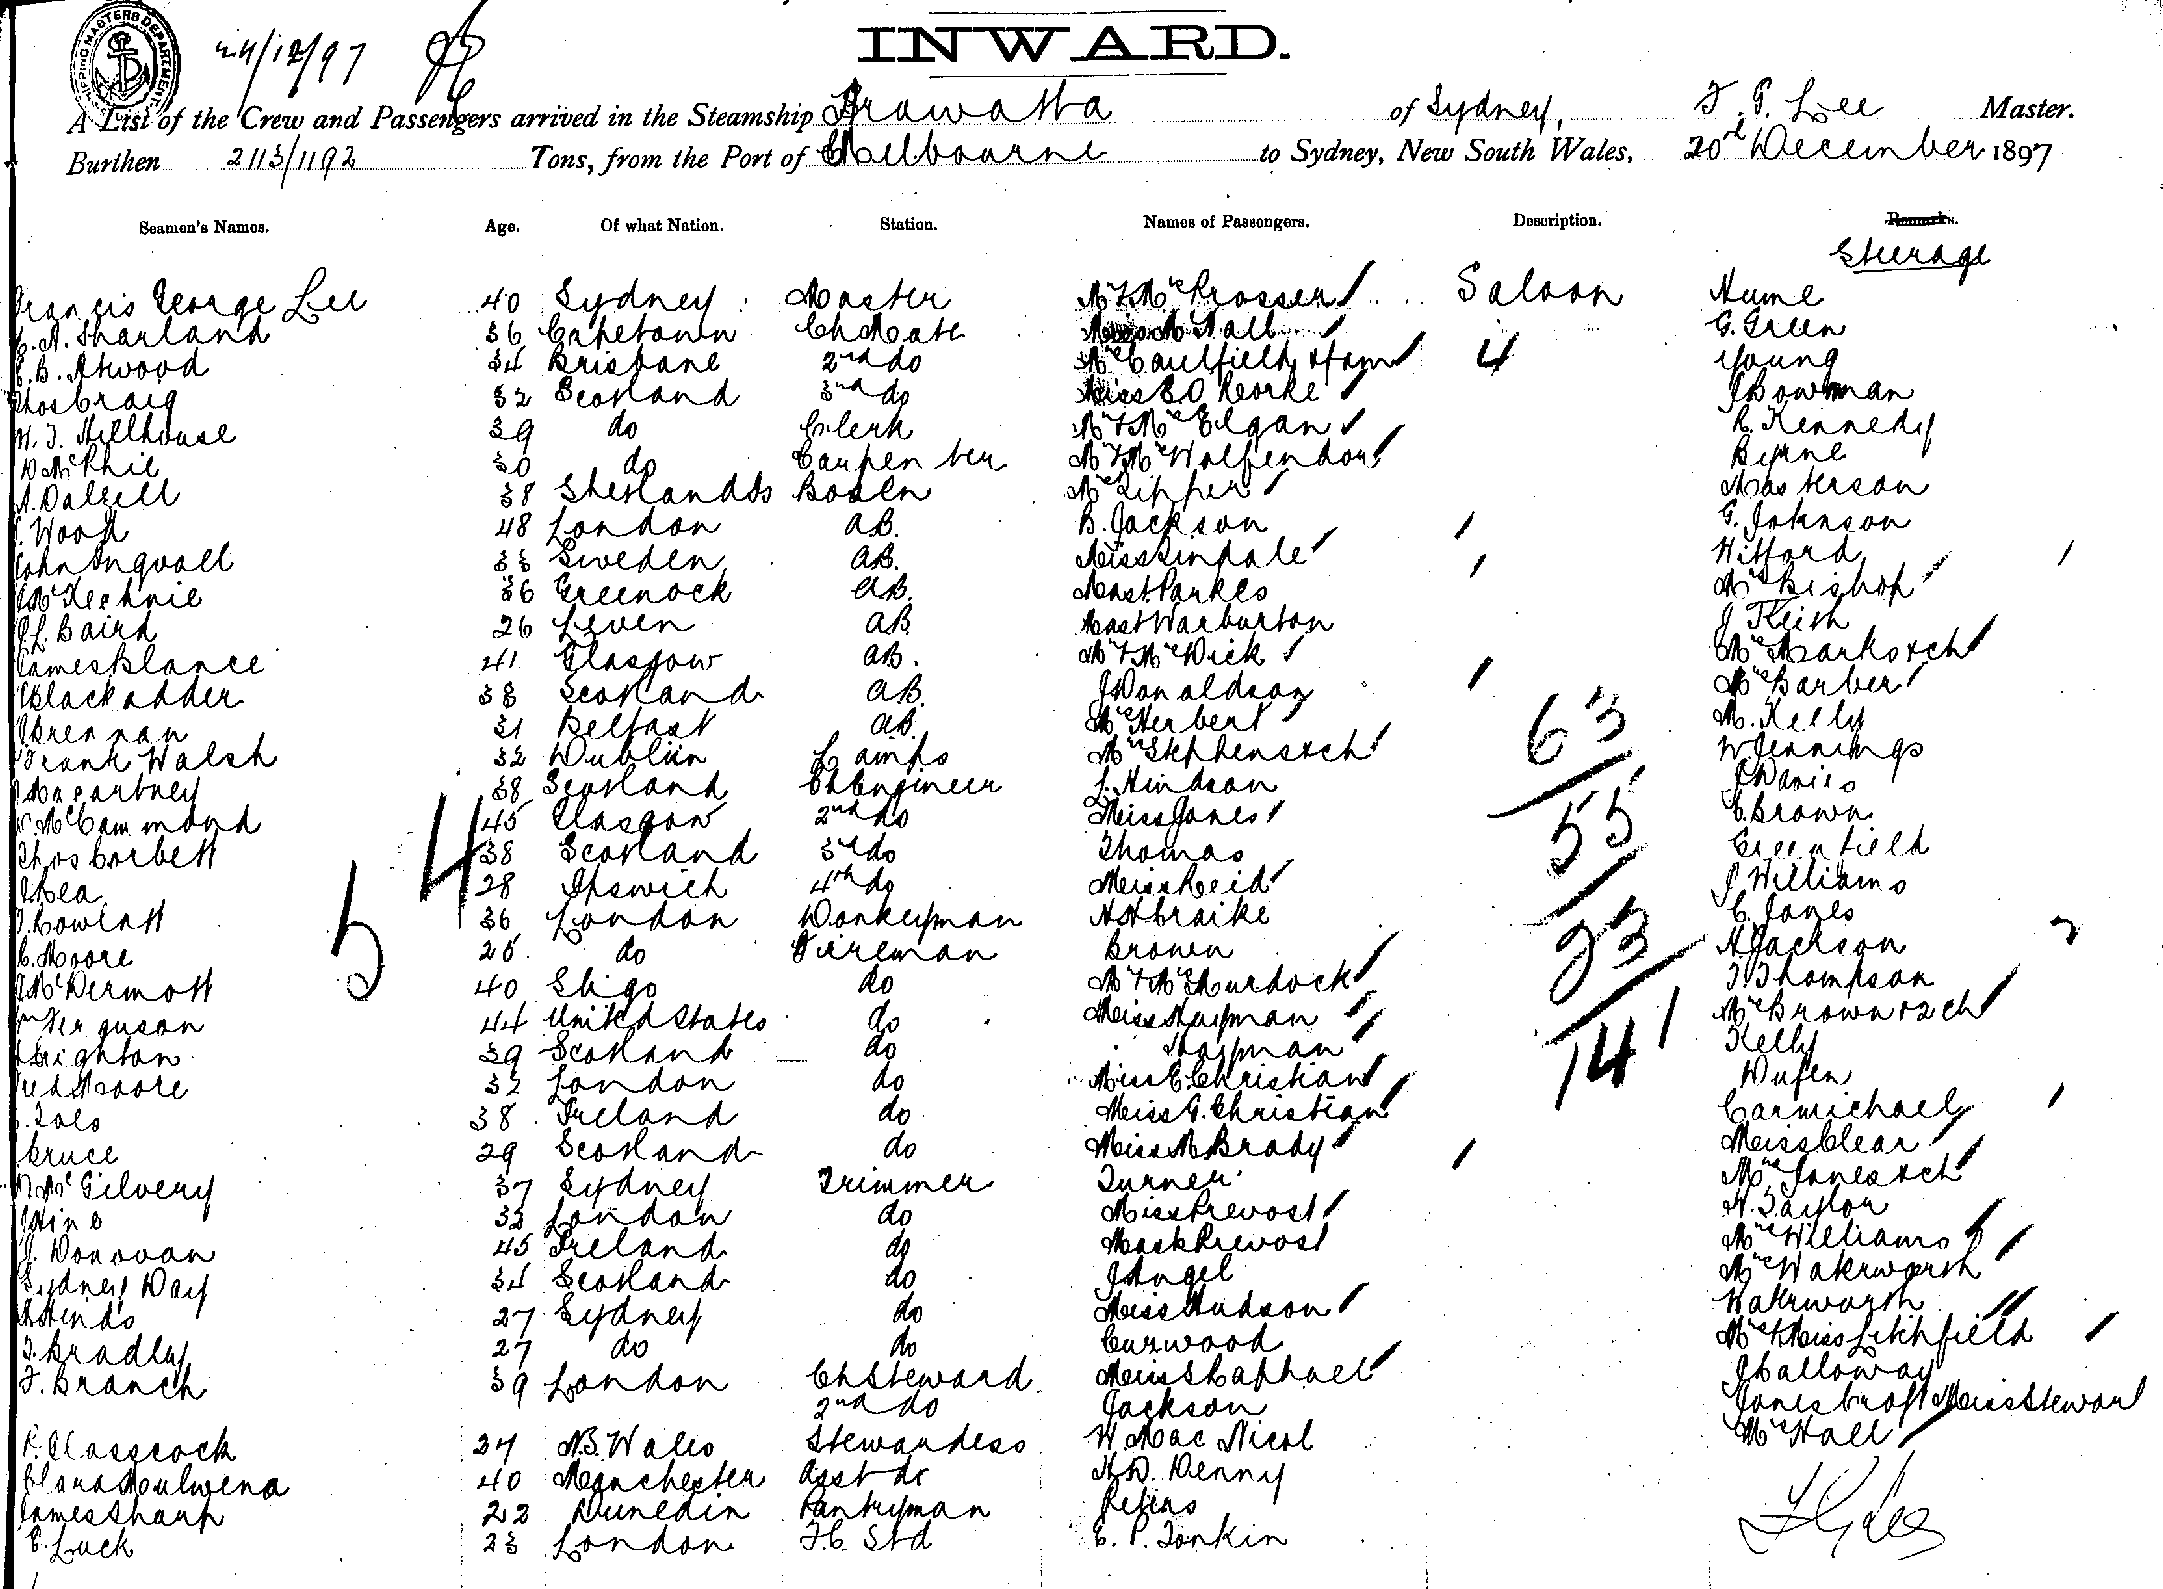 SHIPPING MASTERS DEPARTMENT
24/12/97
INWARD.
A List of the Crew and Passengers arrived in the Steamship Arawatta of Sydney, F. G. Lee Master.
Burthen 2113/1192 Tons, from the Port of Melbourne to Sydney, New South Wales, 20th December 1897
Seamen's Names. Age. Of what Nation. Station. Names of Passengers. Description. Remarks.
Steerage
Francis George Lee 40 Sydney Master Mr & Mrs Prosser Saloon Hume
A. Sharland 36 Capetown Ch Mate Miss M Hall G. Green
B. Atwood 34 Brisbane 2nd do Mrs Caulfield & fam 4 Young
Thos Craig 32 Scotland 3rd do Miss E O Rorke J Bowman
W. J. Hillhouse 39 do Clerk Mr & Mrs Elgan R. Kennedy
D McPhie 30 do Carpenter Mr & Mrs Wolfendon Byrne
A. Dalzell 38 Shetlands Bosen Mrs Lipper Masterson
Wood 48 London AB. B. Jackson G. Johnson
John Ingvall 33 Sweden AB. Miss Lindale Hifford
McKechnie 36 Greenock AB. Mast Parkes Mrs Bishop
L. Baird 26 Leven AB Mast Warburton J Keith
James Blance 41 Glasgow AB. Mr & Mrs Dick Mrs Marks & ch
Blackadder 38 Scotland AB. J Donaldson Mrs Barber
J Brennan 31 Belfast AB. Mrs Herbert M. Kelly
Frank Walsh 32 Dublin Lamps Mrs Stephens & ch 63 W Jennings
J Macartney 38 Scotland Ch Engineer L. Hindson J Davis
McCammond 45 Glasgow 2nd do Miss Jones 55 E. Brown
Thos Corbett 38 Scotland 3rd do Thomas Greenfield
J Rea 54 28 Ipswich 4th do Miss Reid J Williams
J. Rowlatt 36 London Donkeyman A H Craike 23 C. Jones
C. Moore 25 do Fireman Brown A Jackson
J McDermott 40 Sligo do Mr & Mrs Murdock J Thompson
Ferguson 44 United States do Miss Hayman Mrs Brown & 2 ch
Leighton 39 Scotland do Hayman 141 Kelly
Moore 32 London do Miss E. Christian Dufen
Tole 38 Ireland do Miss G. Christian Carmichael
Cruce 29 Scotland do Miss M Brady Miss Clear
McGilvery 37 Sydney Trimmer Turner Mrs Jones & ch
J Hine 33 London do Miss Prevost H. Taylor
J. Donovan 45 Ireland do Mast Prevost Mrs Williams
Sydney Day 34 Scotland do J Angel Mrs Wakeworth
A Hinds 27 Sydney do Miss Hudson Wakeworth
J. Bradley 27 do do Curwood Mrs & Miss Litchfield
F. Branch 39 London Ch Steward Miss Raphael J Halloway
2nd do Jackson Jones Croft Miss Stewart
P. Glasscock 27 N.S. Wales Stewardess W. Mac Nicol Mrs Hall
Clara Mulwena 40 Manchester Asst do H. D. Denny
James Sharp 22 Dunedin Pantryman Peters
E. Luck 23 London F.C. Std E. P. Tonkin
F G Lee